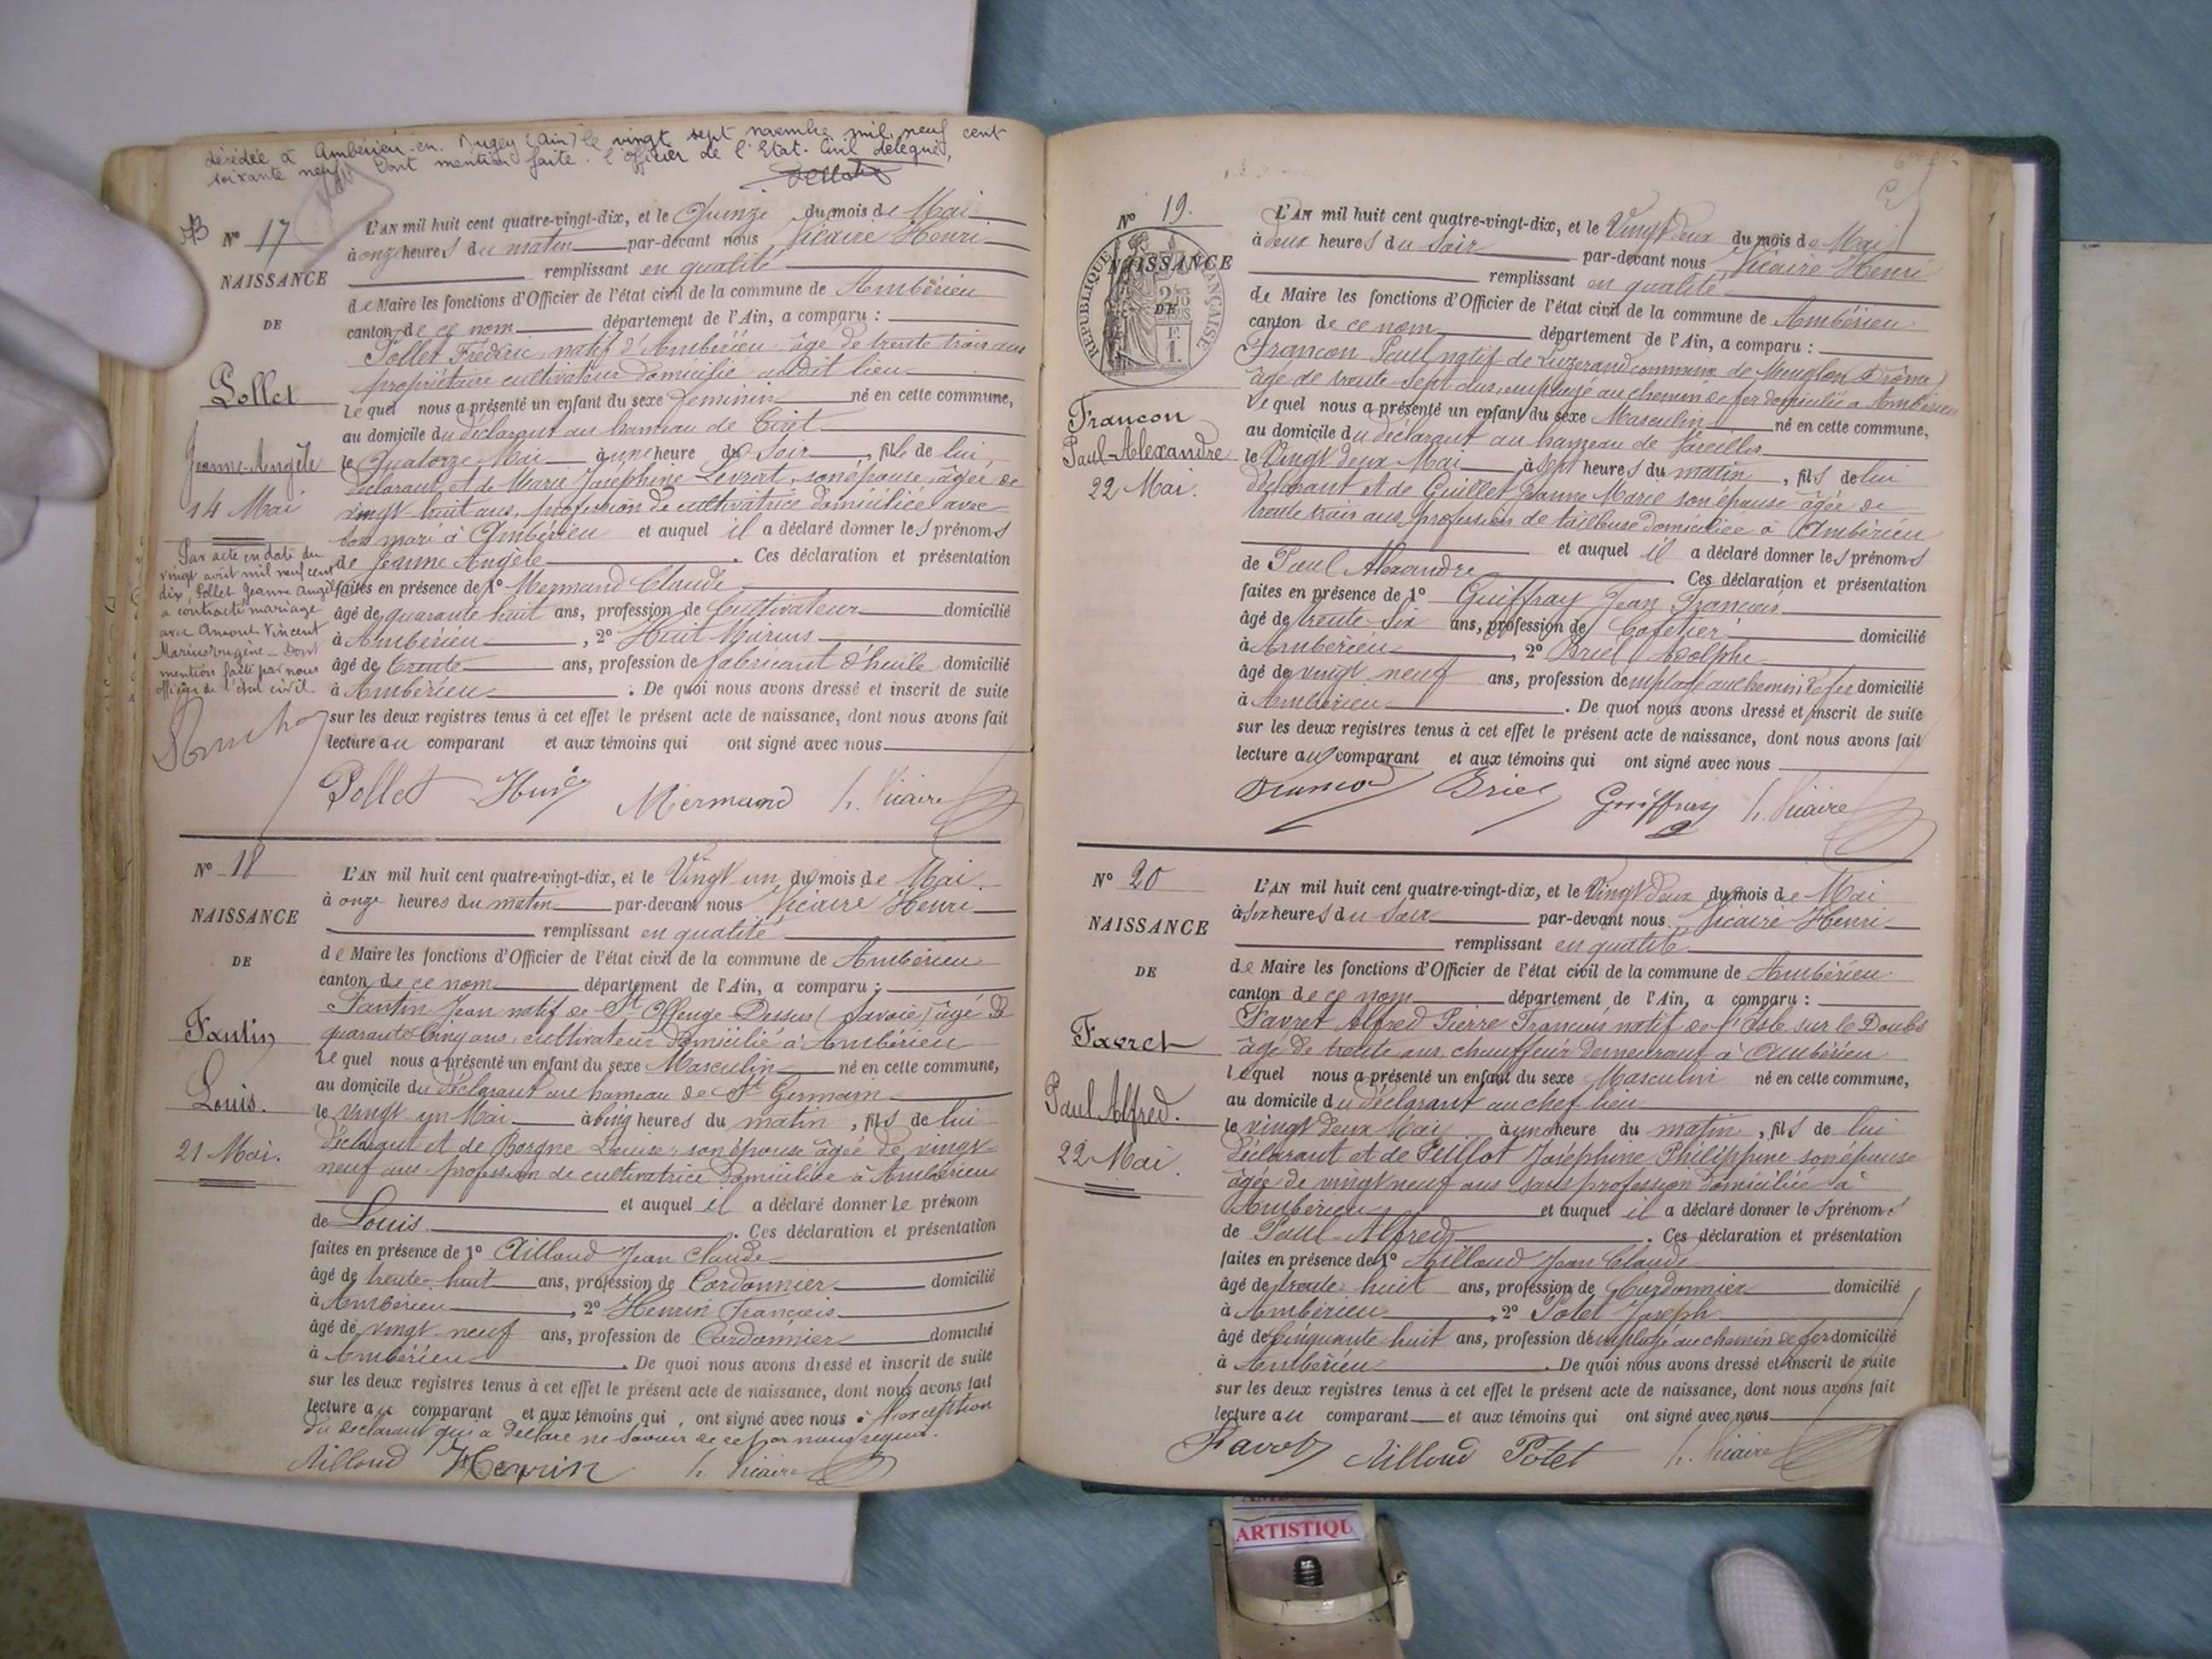 décédée à Ambérieu-en-Bugey (Ain) le vingt sept novembre mil neuf cent
soixante neuf. Dont mention faite. l'officier de l'Etat-Civil délégué,
N° 17
NAISSANCE
DE
Pollet
Jeanne-Angèle
14 Mai
Par acte en date du
vingt août mil neuf cent
dix, Pollet Jeanne Angèle
a contracté mariage
avec Vincent
Marius Eugène - Dont
mention faite par nous
officier de l'état civil
L'AN mil huit cent quatre-vingt-dix, et le Quinze du mois de Mai
à onze heures du matin par-devant nous Vicaire Henri
remplissant en qualité
de Maire les fonctions d'Officier de l'état civil de la commune de Ambérieu
canton de ce nom département de l'Ain, a comparu :
Pollet Frédéric, natif d'Ambérieu âgé de trente trois ans
propriétaire cultivateur domicilié audit lieu
Lequel nous a présenté un enfant du sexe Féminin né en cette commune,
au domicile du déclarant au hameau de Tiret
le Quatorze Mai à une heure du Soir, fille de lui
déclarant et de Marie Joséphine Levrat, son épouse, âgée de
vingt-huit ans, profession de cultivatrice domiciliée avec
son mari à Ambérieu et auquel il a déclaré donner les prénoms
de Jeanne Angèle. Ces déclaration et présentation
faites en présence de 1° Mermand Claude
âgé de quarante huit ans, profession de Cultivateur domicilié
à Ambérieu, 2° Huit Marius
âgé de trente ans, profession de fabricant d'huile domicilié
à Ambérieu. De quoi nous avons dressé et inscrit de suite
sur les deux registres tenus à cet effet le présent acte de naissance, dont nous avons fait
lecture au comparant et aux témoins qui ont signé avec nous
Pollet Mermand h. Vicaire
N° 18
NAISSANCE
DE
Fantin
Louis.
21 Mai.
L'AN mil huit cent quatre-vingt-dix, et le Vingt un du mois de Mai
à onze heures du matin par-devant nous Vicaire Henri
remplissant en qualité
de Maire les fonctions d'Officier de l'état civil de la commune de Ambérieu
canton de ce nom département de l'Ain, a comparu :
Fantin Jean natif de St Offenge-Dessus (Savoie) âgé de
quarante cinq ans, cultivateur domicilié à Ambérieu
Lequel nous a présenté un enfant du sexe Masculin né en cette commune,
au domicile du déclarant au hameau de St Germain
le vingt un Mai à cinq heures du matin, fils de lui
déclarant et de Borgne Louise, son épouse âgée de vingt-
neuf ans profession de cultivatrice domiciliée à Ambérieu
et auquel il a déclaré donner le prénom
de Louis. Ces déclaration et présentation
faites en présence de 1° Ailloud Jean Claude
âgé de trente-huit ans, profession de Cordonnier domicilié
à Ambérieu, 2° Henrin François
âgé de vingt-neuf ans, profession de Cordonnier domicilié
à Ambérieu. De quoi nous avons dressé et inscrit de suite
sur les deux registres tenus à cet effet le présent acte de naissance, dont nous avons fait
lecture au comparant et aux témoins qui ont signé avec nous à l'exception
du déclarant qui a déclaré ne savoir de ce par nous requis.
Ailloud Henrin h. Vicaire
N° 19.
NAISSANCE
DE
RÉPUBLIQUE FRANÇAISE
Francon
Paul-Alexandre
22 Mai.
L'AN mil huit cent quatre-vingt-dix, et le Vingt deux du mois de Mai
à deux heures du Soir par-devant nous Vicaire Henri
remplissant en qualité
de Maire les fonctions d'Officier de l'état civil de la commune de Ambérieu
canton de ce nom département de l'Ain, a comparu :
Francon Paul natif de Luzerand commune de Menglon (Drôme)
âgé de trente-sept ans, employé au chemin de fer domicilié à Ambérieu
Lequel nous a présenté un enfant du sexe Masculin né en cette commune,
au domicile du déclarant au hameau de Vareilles
le Vingt deux Mai à sept heures du matin, fils de lui
déclarant et de Guillet Jeanne Marie son épouse âgée de
trente trois ans, profession de tailleuse domiciliée à Ambérieu
et auquel il a déclaré donner les prénoms
de Paul Alexandre. Ces déclaration et présentation
faites en présence de 1° Guiffray Jean François
âgé de trente-six ans, profession de Cafetier domicilié
à Ambérieu, 2° Briel Adolphe
âgé de vingt neuf ans, profession de employé au chemin de fer domicilié
à Ambérieu. De quoi nous avons dressé et inscrit de suite
sur les deux registres tenus à cet effet le présent acte de naissance, dont nous avons fait
lecture au comparant et aux témoins qui ont signé avec nous
Francon Briel Guiffray h. Vicaire
N° 20
NAISSANCE
DE
Favret
Paul Alfred.
22 Mai.
L'AN mil huit cent quatre-vingt-dix, et le Vingt deux du mois de Mai
à six heures du Soir par-devant nous Vicaire Henri
remplissant en qualité
de Maire les fonctions d'Officier de l'état civil de la commune de Ambérieu
canton de ce nom département de l'Ain, a comparu :
Favret Alfred Pierre François natif de l'Isle sur le Doubs
âgé de trente ans, chauffeur demeurant à Ambérieu
lequel nous a présenté un enfant du sexe Masculin né en cette commune,
au domicile du déclarant au chef-lieu
le vingt deux Mai à une heure du matin, fils de lui
déclarant et de Joséphine Philippine son épouse
âgée de vingt neuf ans sans profession domiciliée à
Ambérieu et auquel il a déclaré donner les prénoms
de Paul-Alfred. Ces déclaration et présentation
faites en présence de 1° Ailloud Jean Claude
âgé de trente-huit ans, profession de Cordonnier domicilié
à Ambérieu, 2° Potet Joseph
âgé de cinquante huit ans, profession de employé au chemin de fer domicilié
à Ambérieu. De quoi nous avons dressé et inscrit de suite
sur les deux registres tenus à cet effet le présent acte de naissance, dont nous avons fait
lecture au comparant et aux témoins qui ont signé avec nous
Ailloud Potet h. Vicaire
ARTISTIQU